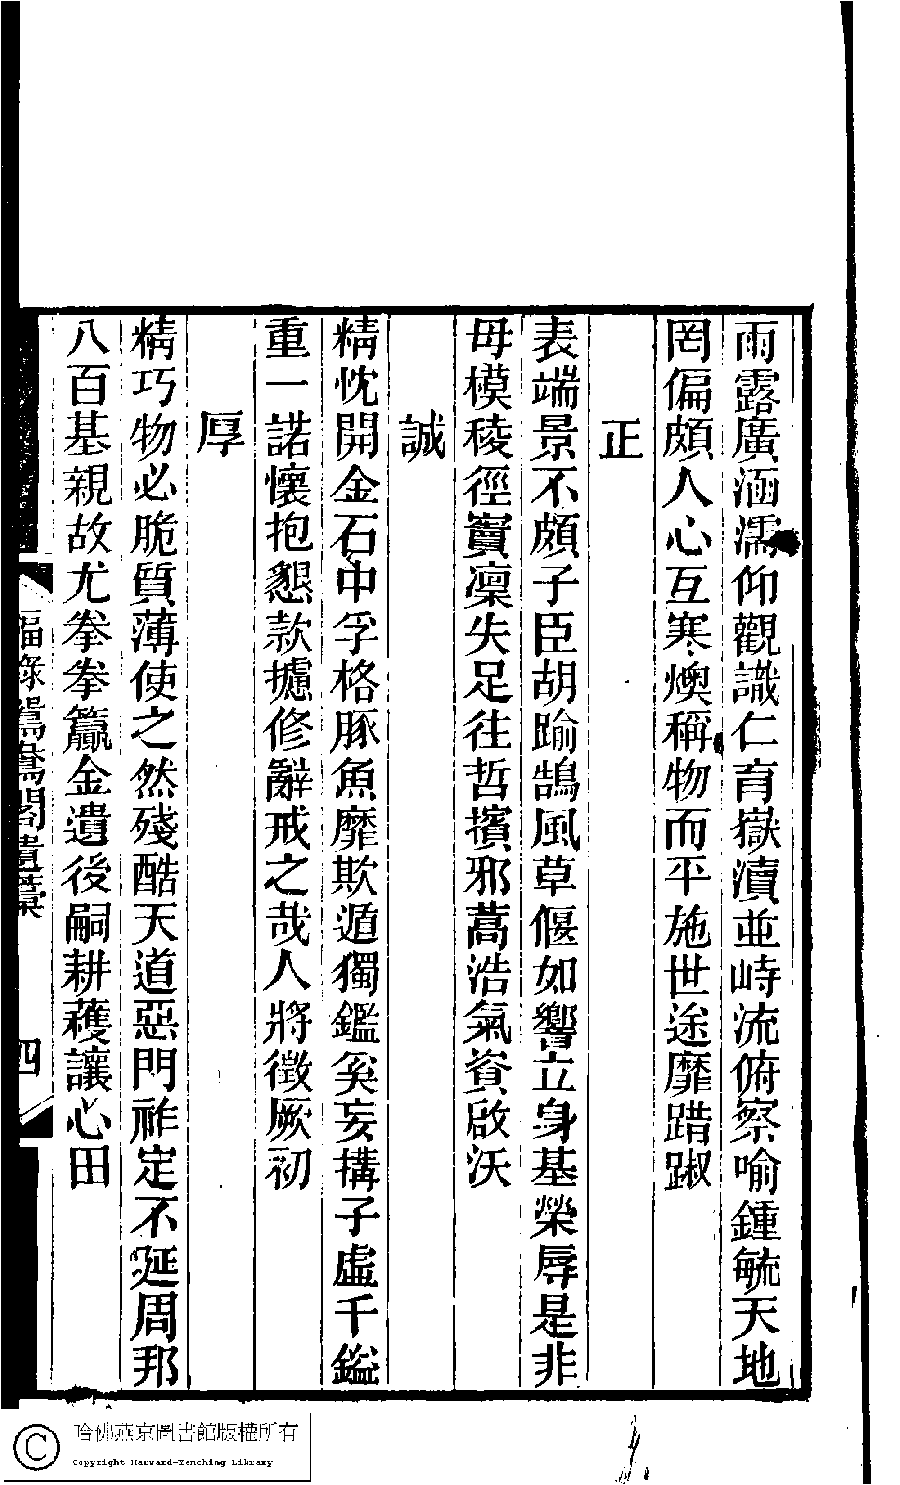 雨露廣涵濡仰觀識仁育嶽瀆並峙流俯察喻鍾毓天地
罔偏頗人心互寒燠稱物而平施世途靡踖踧
正
表端景不頗子臣胡踰鵠風草偃如響立身基榮辱是非
毋模稜徑竇凜失足往哲擯邪蒿浩氣資啟沃
誠
精忱開金石中孚格豚魚靡欺遁獨鑑奚妄搆子虛千鎰
重一諾懷抱懇款攄修辭戒之哉人將徵厥初
厚
精巧物必脆質薄使之然殘酷天道惡門祚定不延周邦
八百基親故尤拳拳籯金遺後嗣耕穫讓心田
福祿鴛鴦閣遺藁
四
哈佛燕京圖書館版權所有
Copyright Harvard-Yenching Library